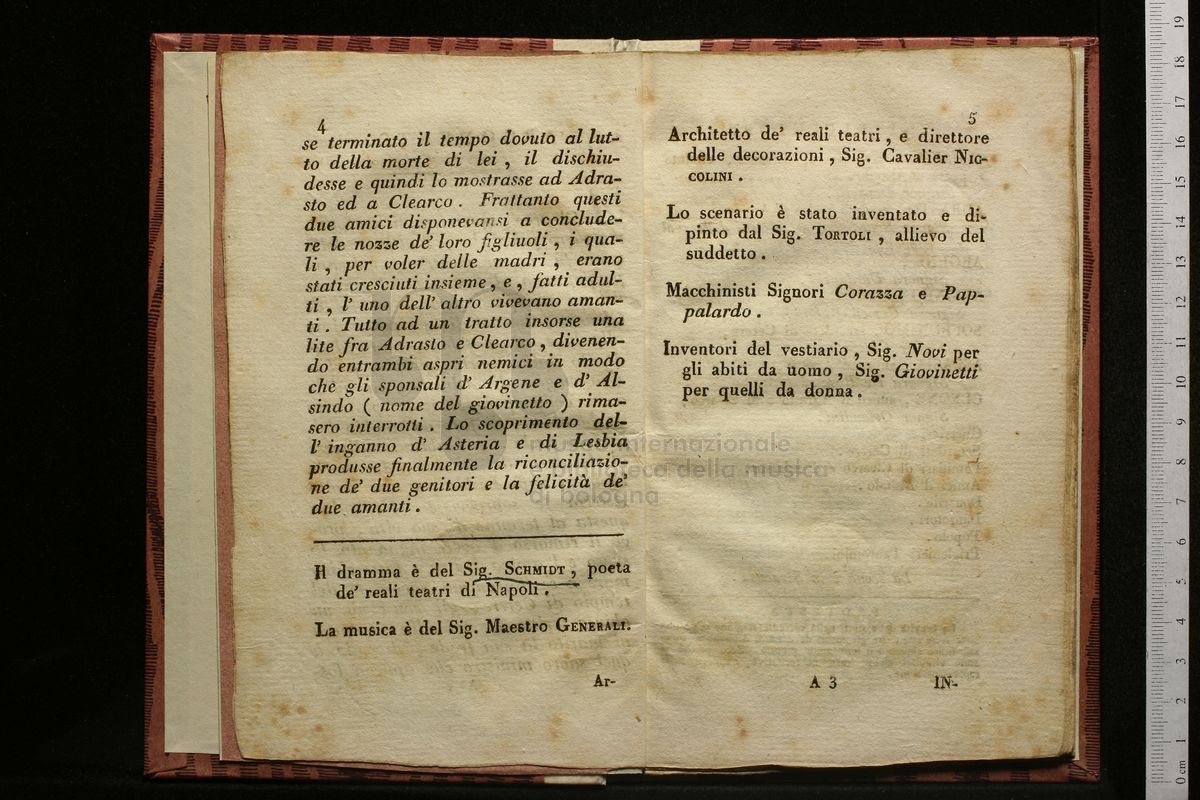 4
se terminato il tempo dovuto al lut-
to della morte di lei , il dischiu-
desse e quindi lo mostrasse ad Adra-
sto ed a Clearco . Frattanto questi
due amici disponevansi a conclude-
re le nozze de' loro figliuoli , i qua-
li , per voler delle madri , erano
stati cresciuti insieme , e , fatti adul-
ti , l' uno dell' altro vivevano aman-
ti . Tutto ad un tratto insorse una
lite fra Adrasto e Clearco , divenen-
do entrambi aspri nemici in modo
che gli sponsali d' Argene e d' Al-
sindo ( nome del giovinetto ) rima-
sero interrotti . Lo scoprimento del-
l' inganno d' Asteria e di Lesbia
produsse finalmente la riconciliazio-
ne de' due genitori e la felicità de'
due amanti .
Il dramma è del Sig. SCHMIDT , poeta
de' reali teatri di Napoli .
La musica è del Sig. Maestro GENERALI.
Ar-
5
Architetto de' reali teatri , e direttore
delle decorazioni , Sig. Cavalier NIC-
COLINI .
Lo scenario è stato inventato e di-
pinto dal Sig. TORTOLI , allievo del
suddetto .
Macchinisti Signori Corazza e Pap-
palardo .
Inventori del vestiario , Sig. Novi per
gli abiti da uomo , Sig. Giovinetti
per quelli da donna .
A 3 IN-
museo internazionale
biblioteca della musica
di bologna
0 cm 1 2 3 4 5 6 7 8 9 10 11 12 13 14 15 16 17 18 19